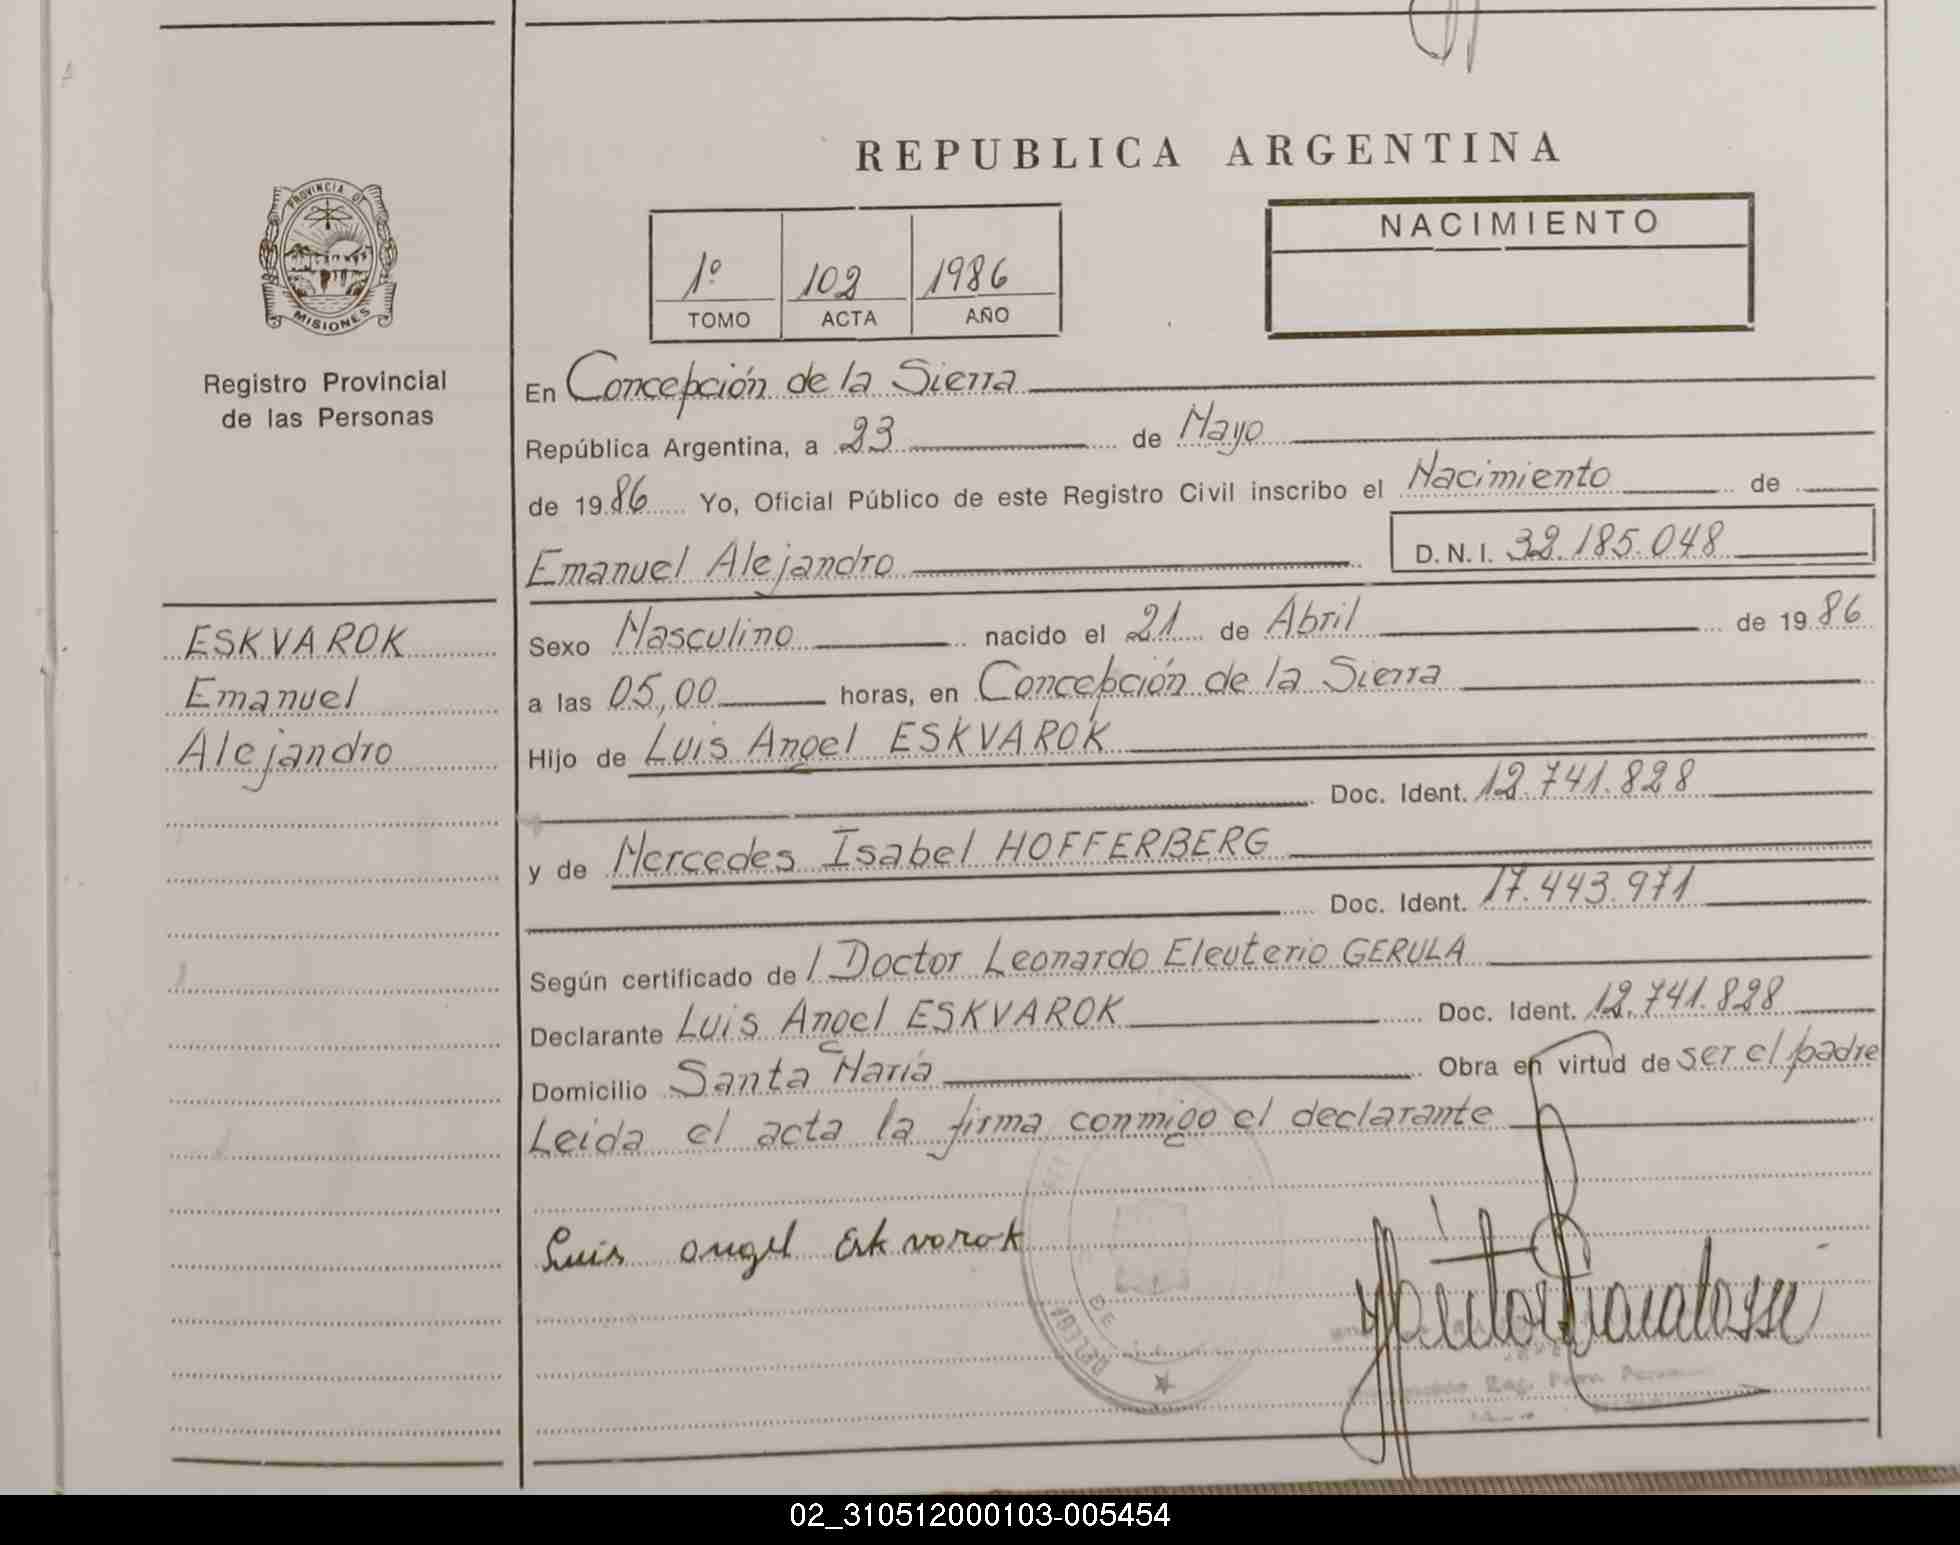 REPUBLICA ARGENTINA
PROVINCIA DE
MISIONES
Registro Provincial
de las Personas
1º 102 1986
TOMO ACTA AÑO
NACIMIENTO
En Concepción de la Sierra
República Argentina, a 23 de Mayo
de 1986 Yo, Oficial Público de este Registro Civil inscribo el Nacimiento de
Emanuel Alejandro D.N.I. 32.185.048
ESKVAROK
Emanuel
Alejandro
Sexo Masculino nacido el 21 de Abril de 1986
a las 05,00 horas, en Concepción de la Sierra
Hijo de Luis Angel ESKVAROK
Doc. Ident. 12.741.828
y de Mercedes Isabel HOFFERBERG
Doc. Ident. 17.443.971
Según certificado de l Doctor Leonardo Eleuterio GERULA
Declarante Luis Angel ESKVAROK Doc. Ident. 12.741.828
Domicilio Santa María Obra en virtud de ser el padre
Leida el acta la firma conmigo el declarante
Luis angel Eskvarok
DE
02_310512000103-005454